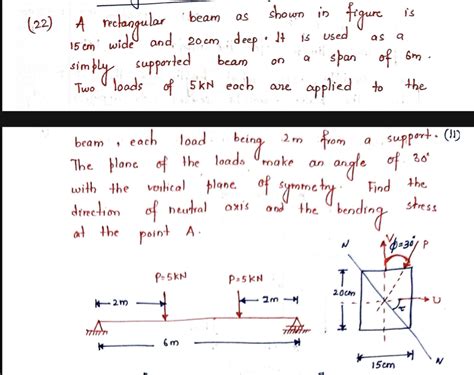 (22) A rectangular beam as shown in figure is
15cm wide and 20cm deep. It is used as a
simply supported beam on a span of 6m.
Two loads of 5kN each are applied to the
beam, each load being 2m from a support. (11)
The plane of the loads make an angle of 30°
with the vertical plane of symmetry. Find the
direction of neutral axis and the bending stress
at the point A.
P=5kN P=5kN
2m 2m
6m
N V ϕ=30° P
20cm
U
N
15cm